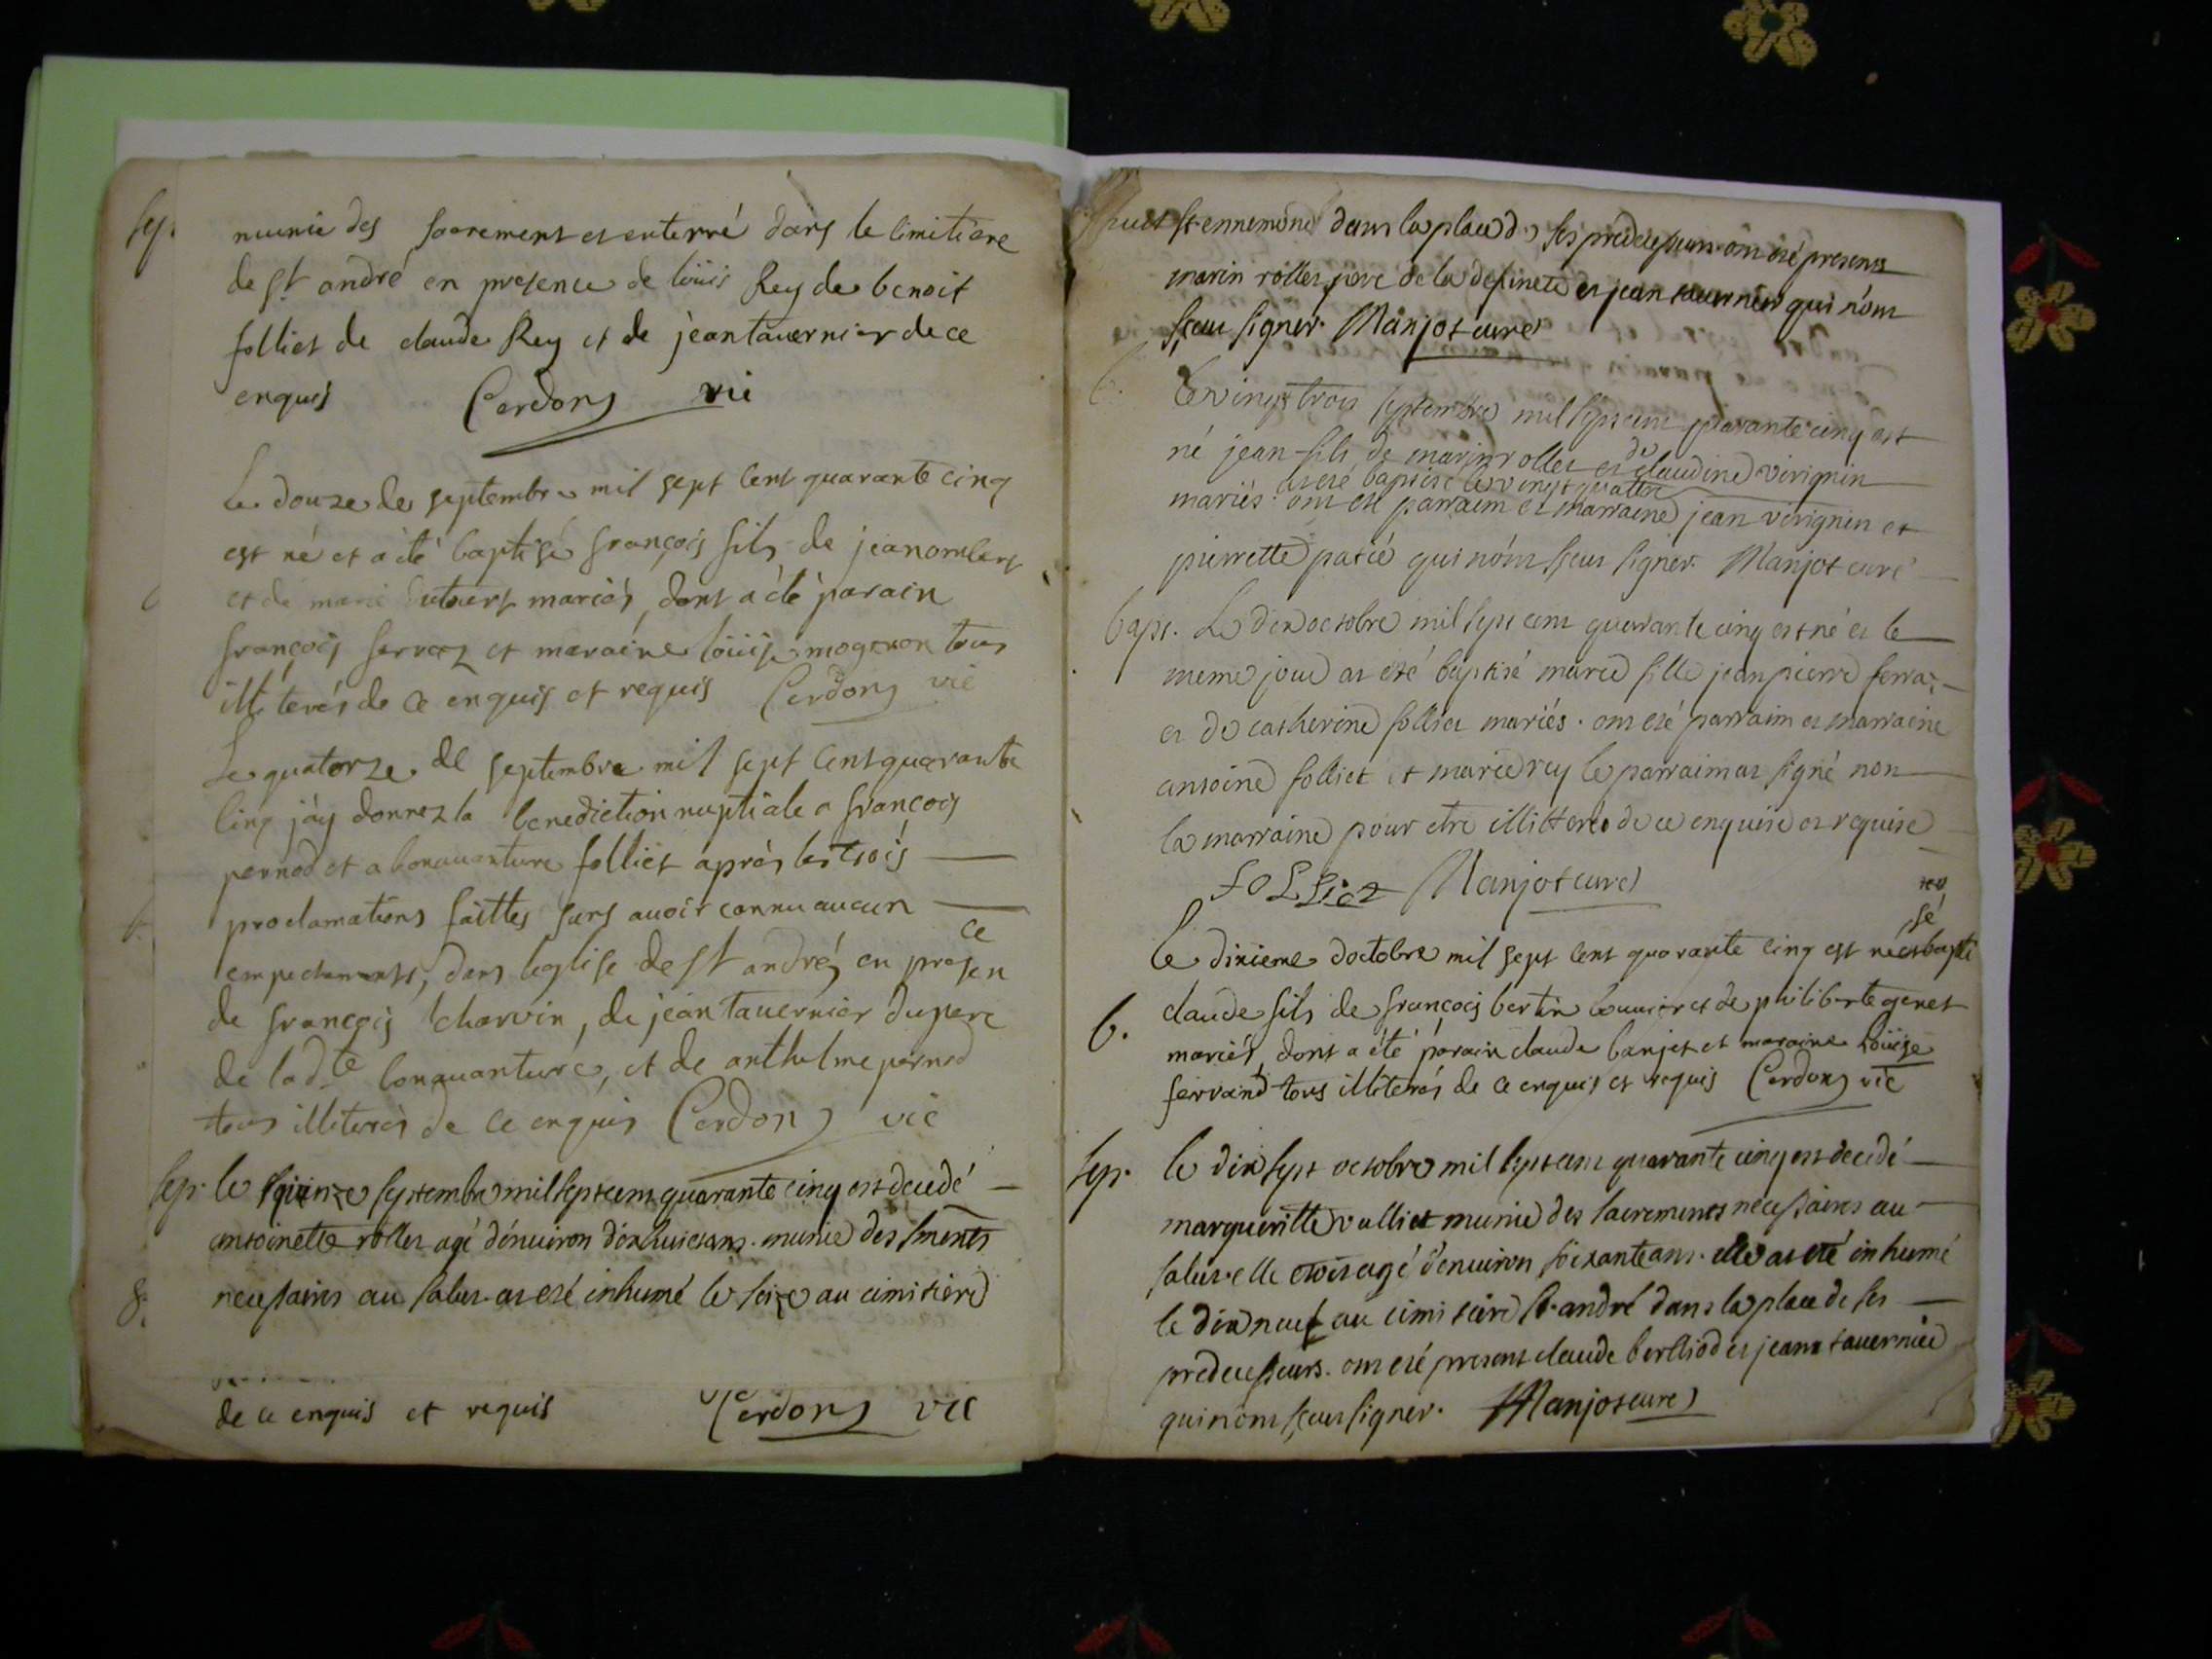 sep. munie des sacrement et enterré dans le cimitiere
de st andré en presence de loüis Rey de benoit
folliet de claude Rey et de jean tavernier de ce
enquis Cerdon vic
Le douze de septembre mil sept cent quarante cinq
est né et a été baptisé françois fils de jean
et de marie mariés, dont a été parain
françois et maraine loüise mogeron tous
illiterés de ce enquis et requis Cerdon vic
Le quatorze de septembre mil sept cent quarante
cinq j'ay donnez la benediction nuptiale a françois
pernod et a bonauanture folliet aprés les trois
proclamations faittes sans auoir connu aucun
empechements, dans l'eglise de st andré, en presen ce
de françois charvin, de jean tauernier du pere
de lad.te bonauanture, et de anthelme pernod
tous illiterés de ce enquis Cerdon vic
sep. le quinze septembre mil sept cent quarante cinq est decedé
antoinette rollet agé d'énuiron dix huict ans. munie des sments
necessaires au salut. at eté inhumé le seize au cimitiere
de ce enquis et requis Cerdon vic
st. ennemond dans la place de ses prédecesseurs. ont eté presents
marin rollet pere de la defunete et jean tauernier qui n'ont
sçeu signer. Manjot curé
b. Le vingt trois septembre mil sept cent quarante cinq est
né jean fils de marin rollet et de claudine virignin
at eté baptisé le vingt quattre
mariés. ont eté parraim et marraine jean virignin et
pierrette patié qui n'ont sçeu signer. Manjot curé
bapt. Le dix octobre mil sept cent quarante cinq est né et le
meme jour at eté baptisé marie fille jean pierre
et de catherine folliet mariés. ont eté parraim et marraine
antoine folliet et marie rey le parraim at signé non
la marraine pour etre illitteréé de ce enquise et requise
FOLLiet Manjot curé
Le dixieme d'octobre mil sept cent quarante cinq est né et bapti sé
b. claude fils de françois bertin bouuier et de philiberte genet
mariés, dont a été parain claude banjet et maraine loüise
servand tous illiterés de ce enquis et requis Cerdon vic
sep. le dix sept octobre mil sept cent quarante cinq est decedé
margueritte vulliet munie des sacrements necessaires au
salut. elle etoit agé d'enuiron soixante ans. elle at eté inhumé
le dix neuf au cimitiere st. andré dans la place de ses
predecesseurs. ont eté present claude berlliod et jean tauernier
qui n'ont sçeu signer. Manjot curé